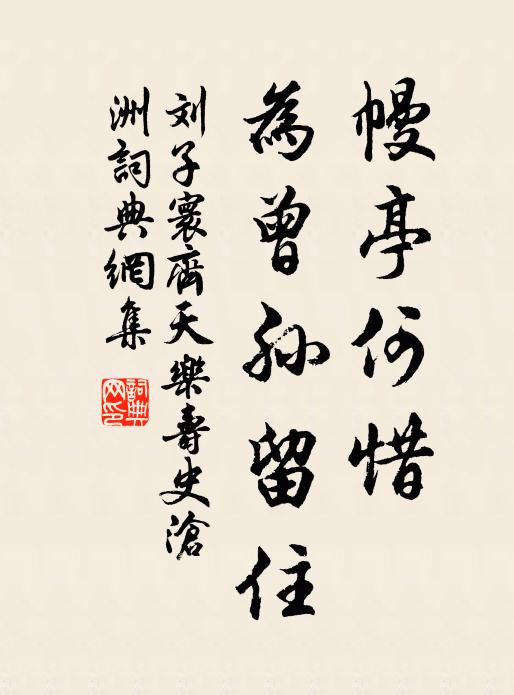 幔亭何惜
為曾孙留住
刘子寰齊天樂壽史滄
洲詞典網集
詞典
网印